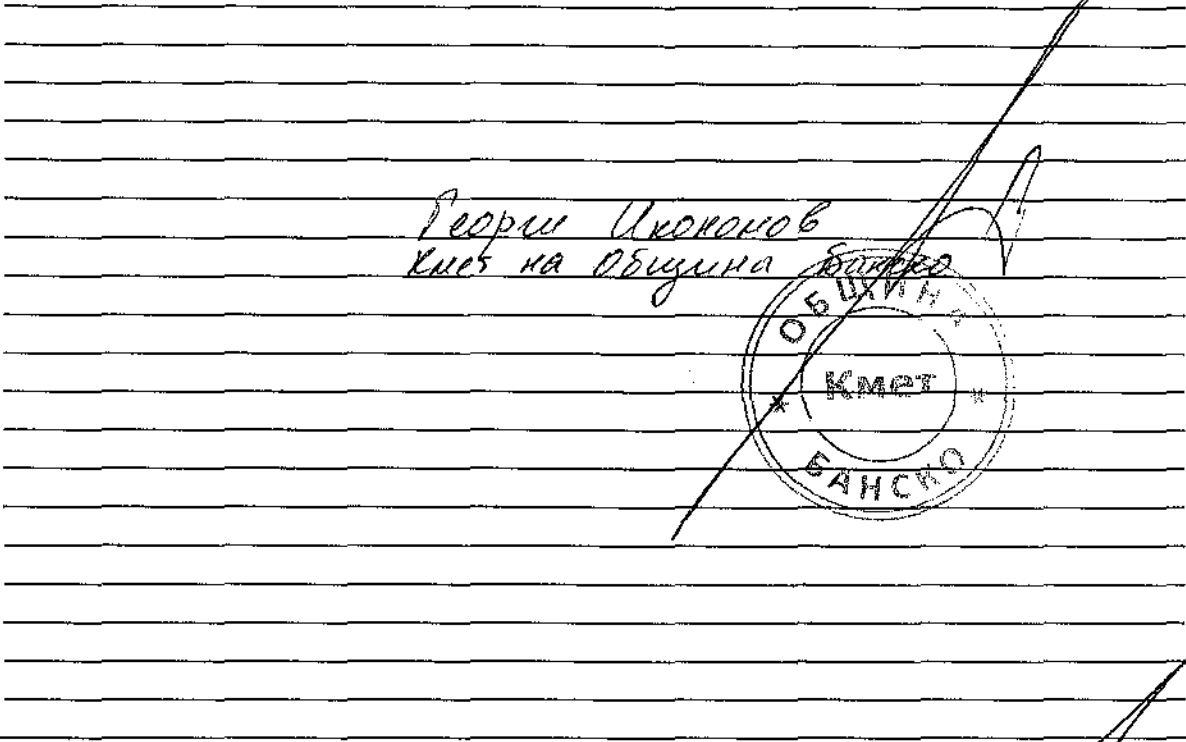 Георги Икономов
Кмет на Община Банско
ОБЩИНА
Кмет
* *
БАНСКО